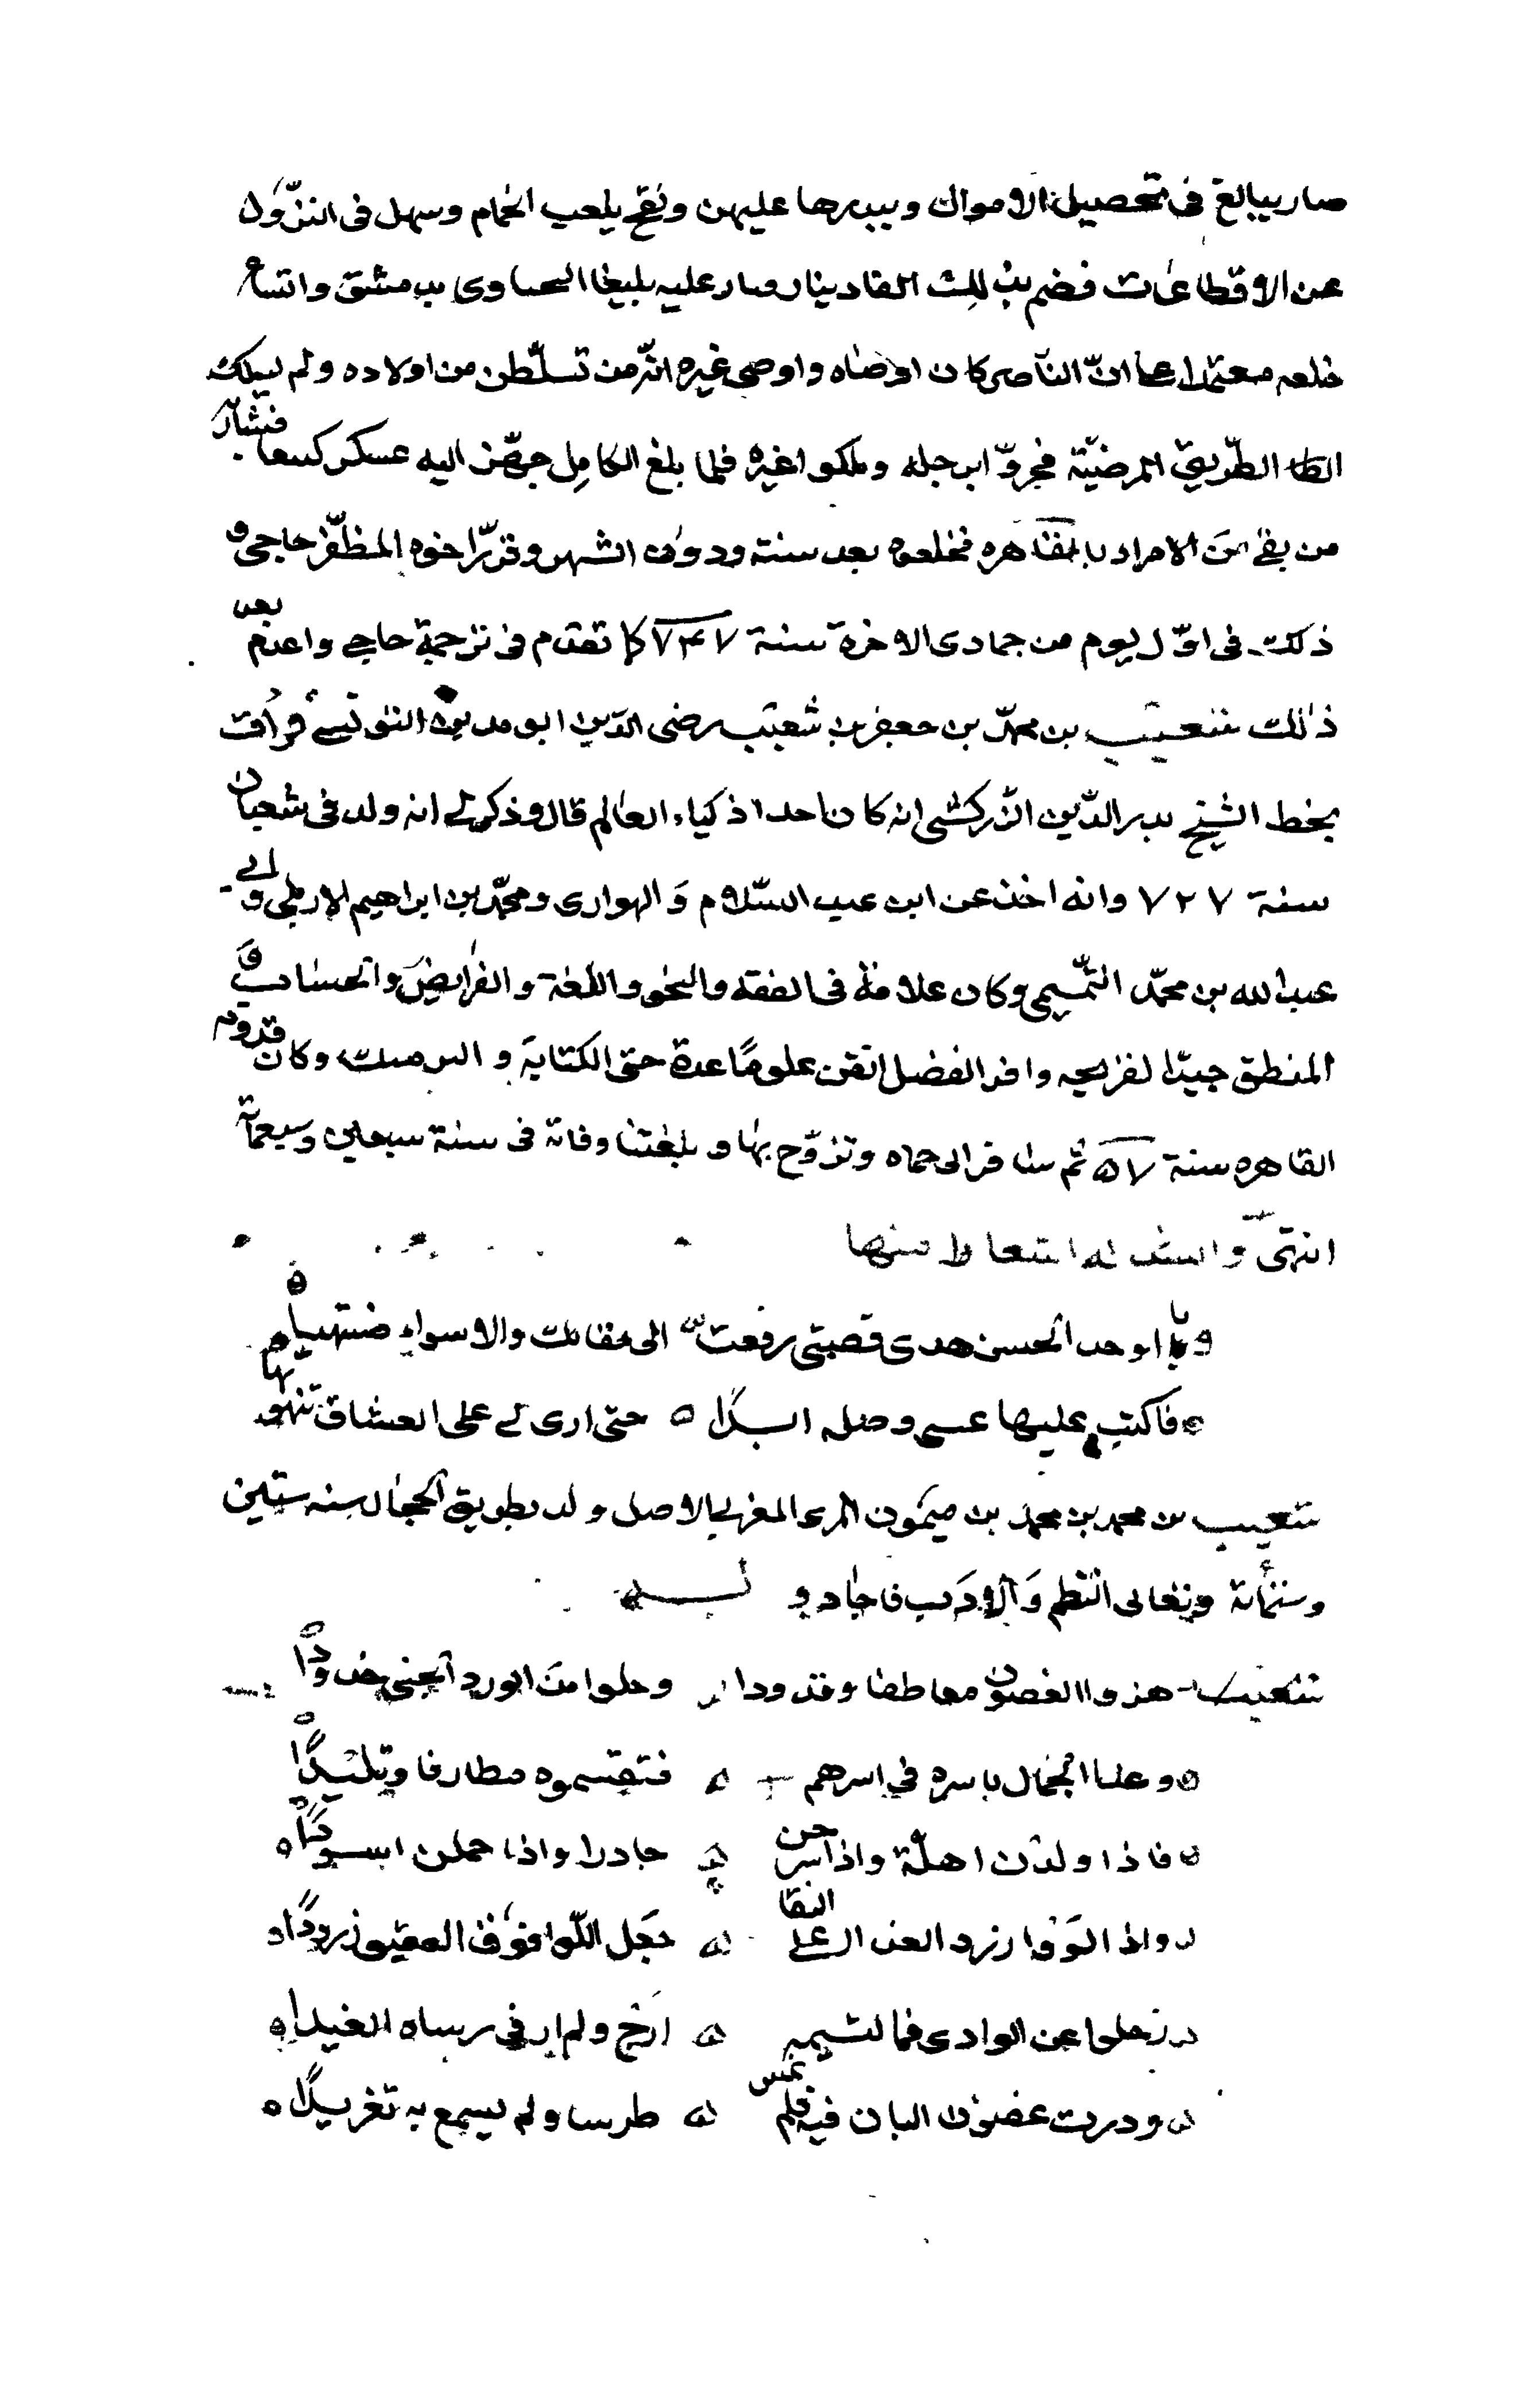 صار يبالغ فى تحصيل الاموال ويبدرها عليهن وولع يلعب الحمام وسهل فى النزول
عن الاقطاعات فضم بذلك الفا دينار وصار عليه يلبغا اليحياوى بدمشق واشاع
خلعه معتمدا على انّ الناصر كان اوصاه واوصى غيره انّ من تسلّطن من اولاده ولم يسلك
الطريق المرضيّة فجروّا برجله وملكوا غيره فلما بلغ الكامل جهّز اليه عسكر كسعا فشار
من بقى من الامراء بالقاهره فخلعوه بعد سنة ودون الشهر وقرّر اخوه المظفّر حاجى و
ذلك فى اوّل يوم من جمادى الاخرة سنة ٧٤٧ كما تقدم فى ترجمة حاجى واعدم بعد
ذلك شعيب بن محمّد بن جعفر بن شعيب رضى الدّين ابو مدين التونسى قرأت
بخط الشيخ بدر الدّين الزركشى انه كان احد اذكياء العالم قال وذكر لى انه ولد فى شعبان
سنة ٧٢٧ وانه اخذ عن ابن عبد السّلام والهوارى ومحمّد بن ابراهيم الاربلى وابى
عبد الله بن محمّد التّميمى وكان علامة فى الفقه والنحو واللغة والفرايض والحساب و
المنطق جيّد القريحه وافر الفضل اتقن علومًا عدة حتى الكتابة و وكان قدومه
القاهره سنة ٥٧ ثم سافر الى حماه وتزوّج بها و بلغتنا وفاته فى سنة سبعين وسبعمائة
انتهى وانشد له منها
ويا اوحد الحسن هدى قصتى رفعت الى مقامك والاسواء منتهياه
فاكتب عليها عسى وصله ابدًا ه حتى ارى لى على العشاق تنهو بها
شعيب بن محمد بن محمد بن ميمون المرى المغربى الاصل ولد بطريق الحجاز سنه ستين
وستمائة وتعالى النظم والادب فاجاد و
شعيب هزوا الغصون معاطفا وقدودا وحلوا من الورد الجنى خدودًا
وعلا الجمال باسره فى اسرهم فتقسموه مطارفا وتليدًا
فاذا ولدن اهلّة واذا سرحن جادرا واذا حملن اسودًا
واذا لووا زرد العذار على النقا جعل اللّوا فوق العقيق زرودًا
رحلوا عن الوادى فما لنسيمه ارج ولم ار فى رباه الغيدا
ودرت غصون البان فيه فلم تمس طربا ولم يسمع به تغريدًا